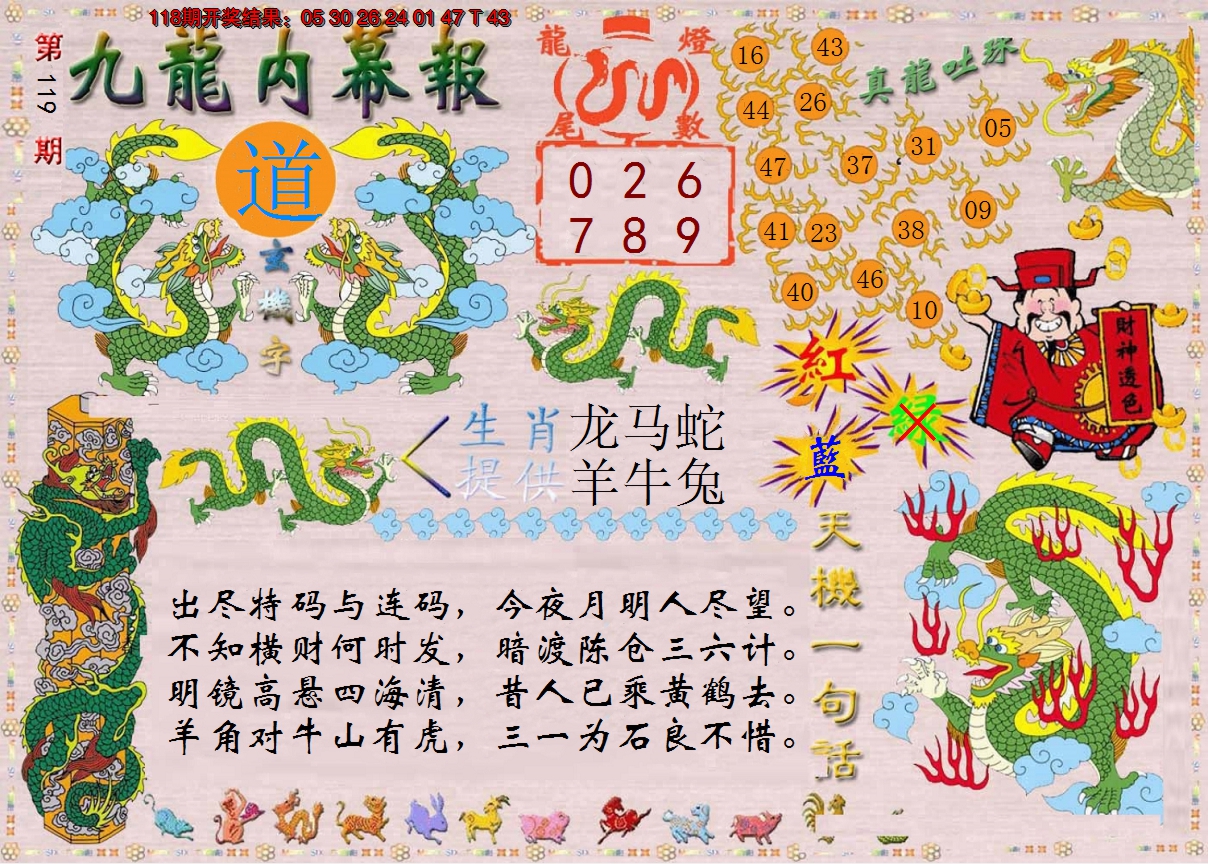 118期开奖结果：05 30 26 24 01 47 T 43
第119期
九龍内幕報
道
玄機字
龍燈
尾數
0 2 6
7 8 9
真龍吐珠
16
43
44
26
31
05
47
37
41
23
38
09
40
46
10
財神透色
紅
绿
藍
生肖提供
龙马蛇
羊牛兔
天機一句話
出尽特码与连码，今夜月明人尽望。
不知横财何时发，暗渡陈仓三六计。
明镜高悬四海清，昔人已乘黄鹤去。
羊角对牛山有虎，三一为石良不惜。